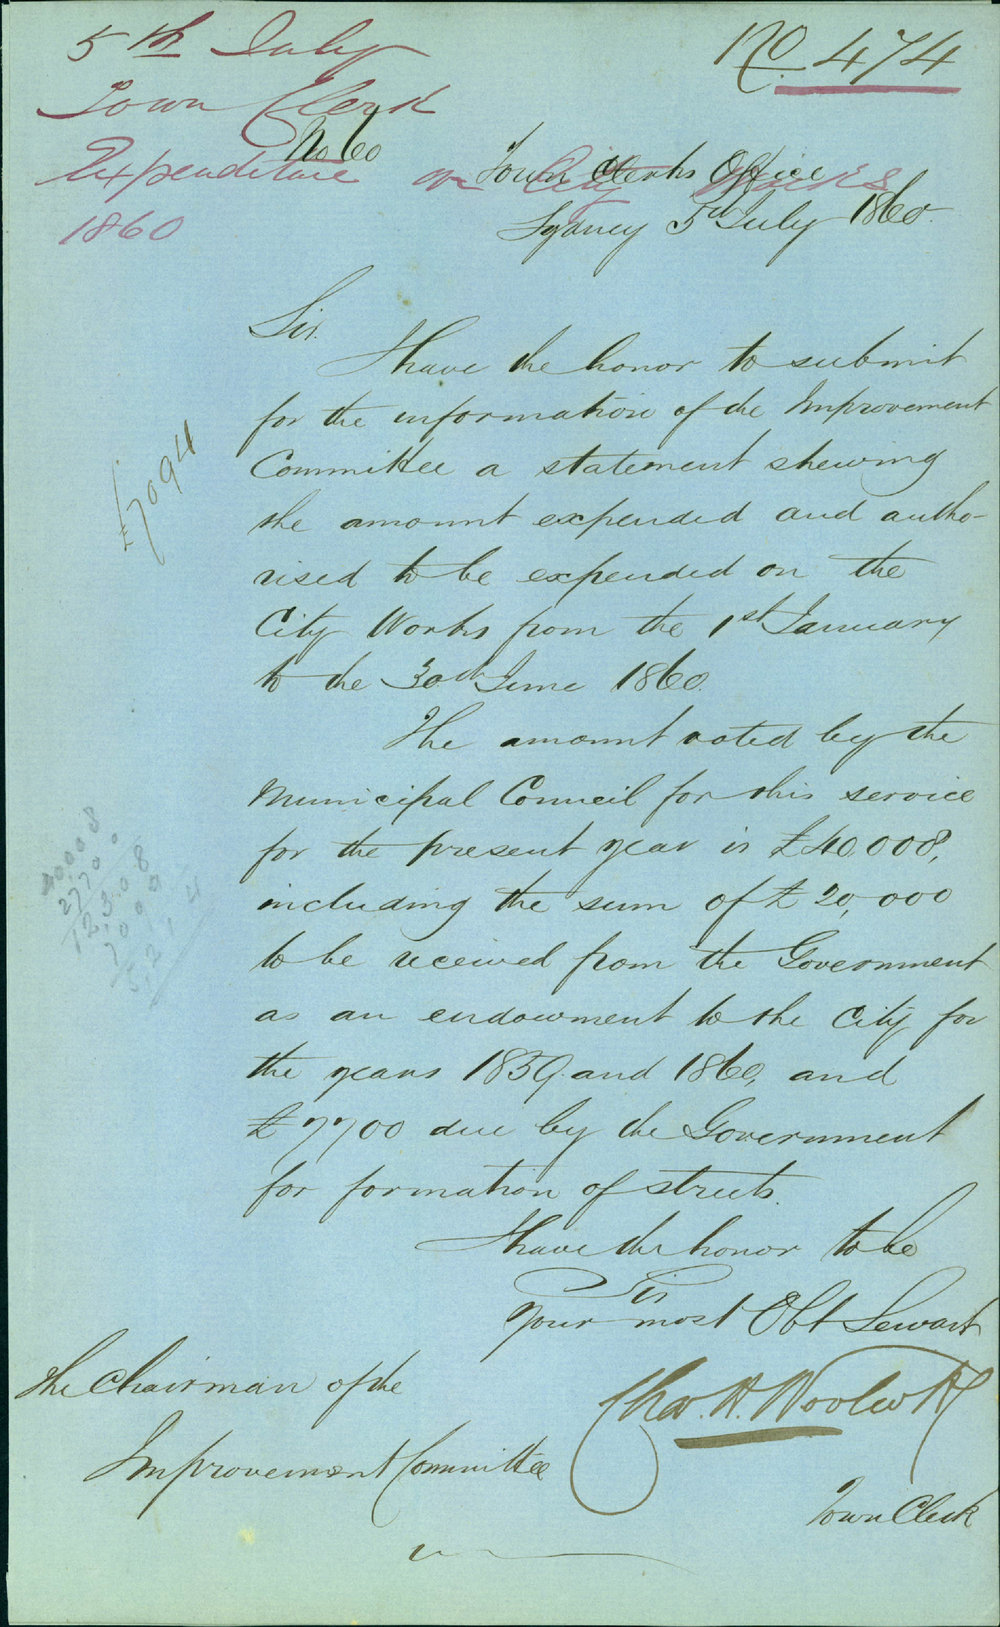 5th July
No 474
Town Clerk
No 60
Expenditure on City Works
1860
Town Clerks Office
Sydney 5th July 1860.
Sir.
I have the honor to submit
for the information of the Improvement
Committee a statement shewing
the amount expended and autho-
rised to be expended on the
City Works from the 1st January
to the 30th June 1860.
£7094
The amount voted by the
Municipal Council for this service
for the present year is £40.008,
including the sum of £20,000
to be received from the Government
as an endowment to the City for
the years 1859. and 1860, and
£7700 due by the Government
for formation of streets.
40.008
27700
12308
I have the honor to be
Sir
Your most Obt Servant
Chas. H. Woolcott
Town Clerk
The Chairman of the
Improvement Committee